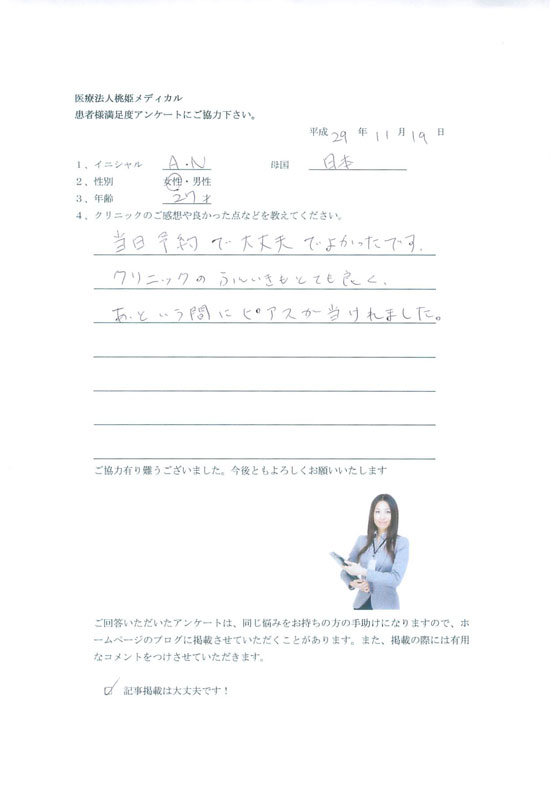 医療法人桃姫メディカル
患者様満足度アンケートにご協力下さい。
平成 29 年 11 月 19 日
1、イニシャル A・N 母国 日本
2、性別 女性・男性
3、年齢 27才
4、クリニックのご感想や良かった点などを教えてください。
当日予約で大丈夫でよかったです。
クリニックのふんいきもとても良く、
あっという間にピアスが当けれました。
ご協力有り難うございました。今後ともよろしくお願いいたします
ご回答いただいたアンケートは、同じ悩みをお持ちの方の手助けになりますので、ホ
ームページのブログに掲載させていただくことがあります。また、掲載の際には有用
なコメントをつけさせていただきます。
☑ 記事掲載は大丈夫です！